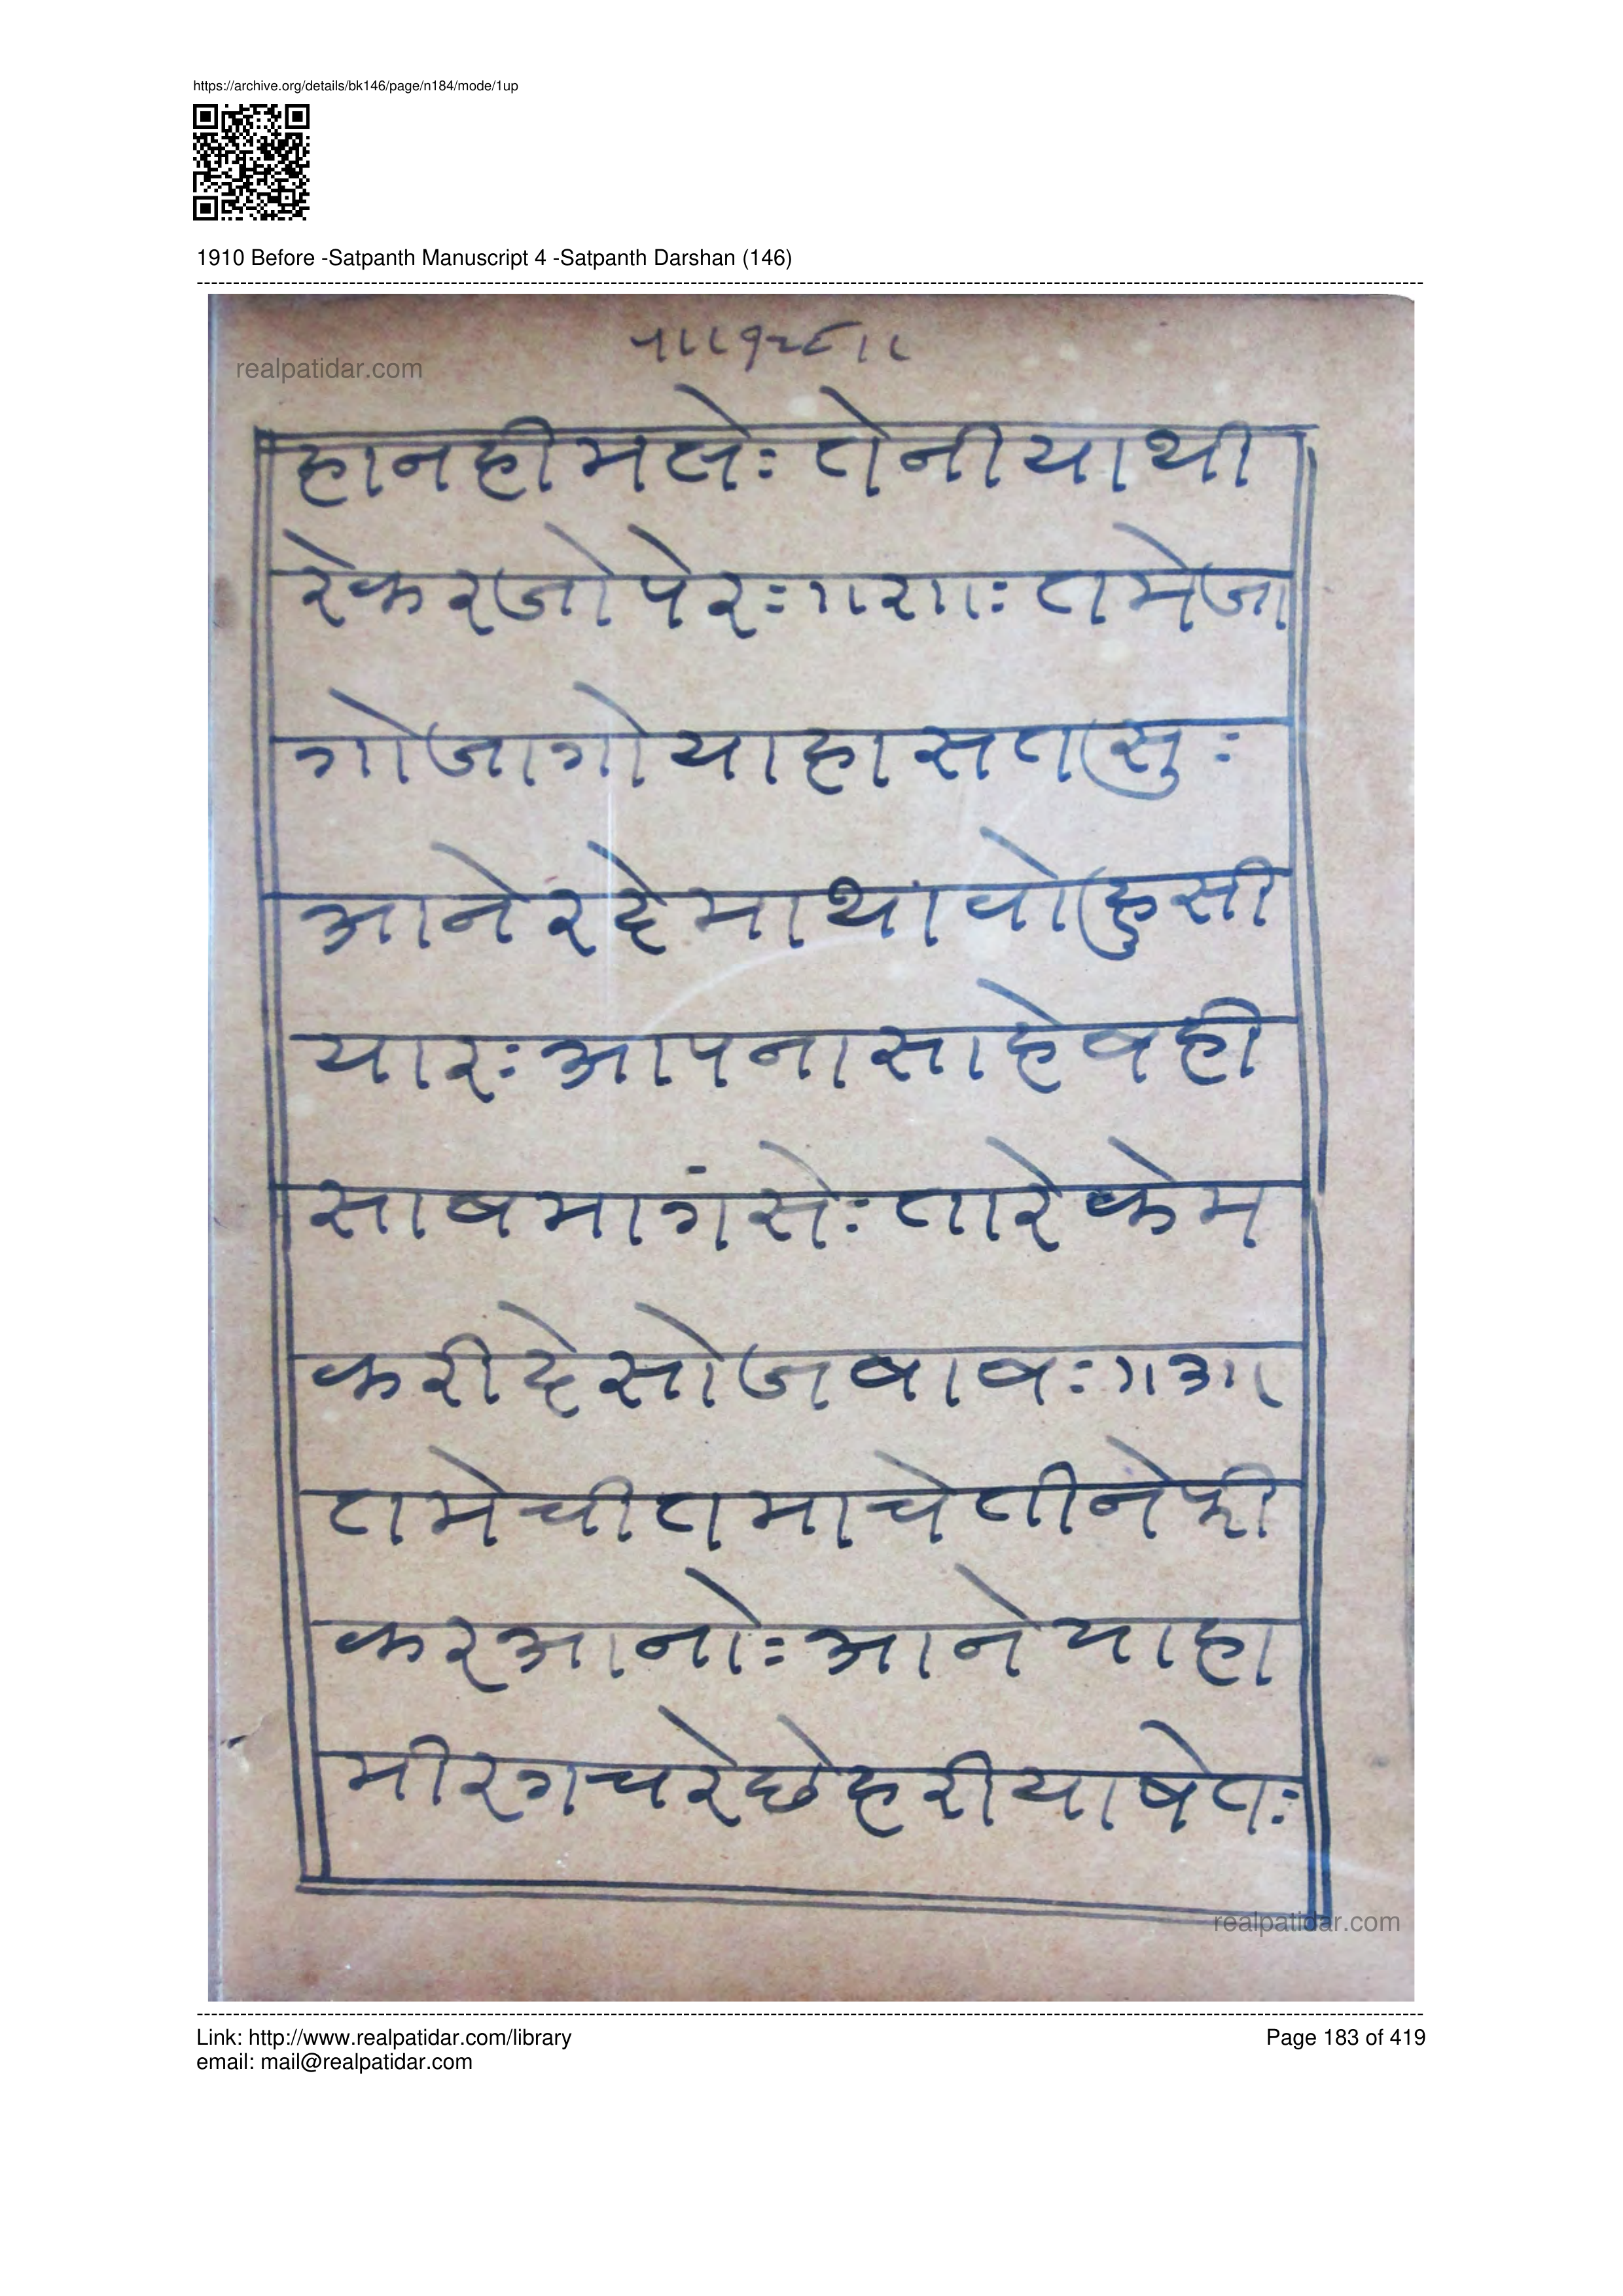 https://archive.org/details/bk146/page/n184/mode/1up
1910 Before -Satpanth Manuscript 4 -Satpanth Darshan (146)
realpatidar.com
हानहीमलेः तेनीयाथी
रेकरजोपेरः ॥२॥ः तमेजा
गोजागोयाहासतसुः
आनेरदेमाथावोहुसी
यारः आपनासाहेबही
साबमागंसेः तारेकेम
करीदेसोजबाबः ॥३॥
तमेचीतमाचेतीनेफी
करआनोः आनेयाहा
मीरगचरेछेहरीयाषेतः
realpatidar.com
Link: http://www.realpatidar.com/library
Page 183 of 419
email: mail@realpatidar.com